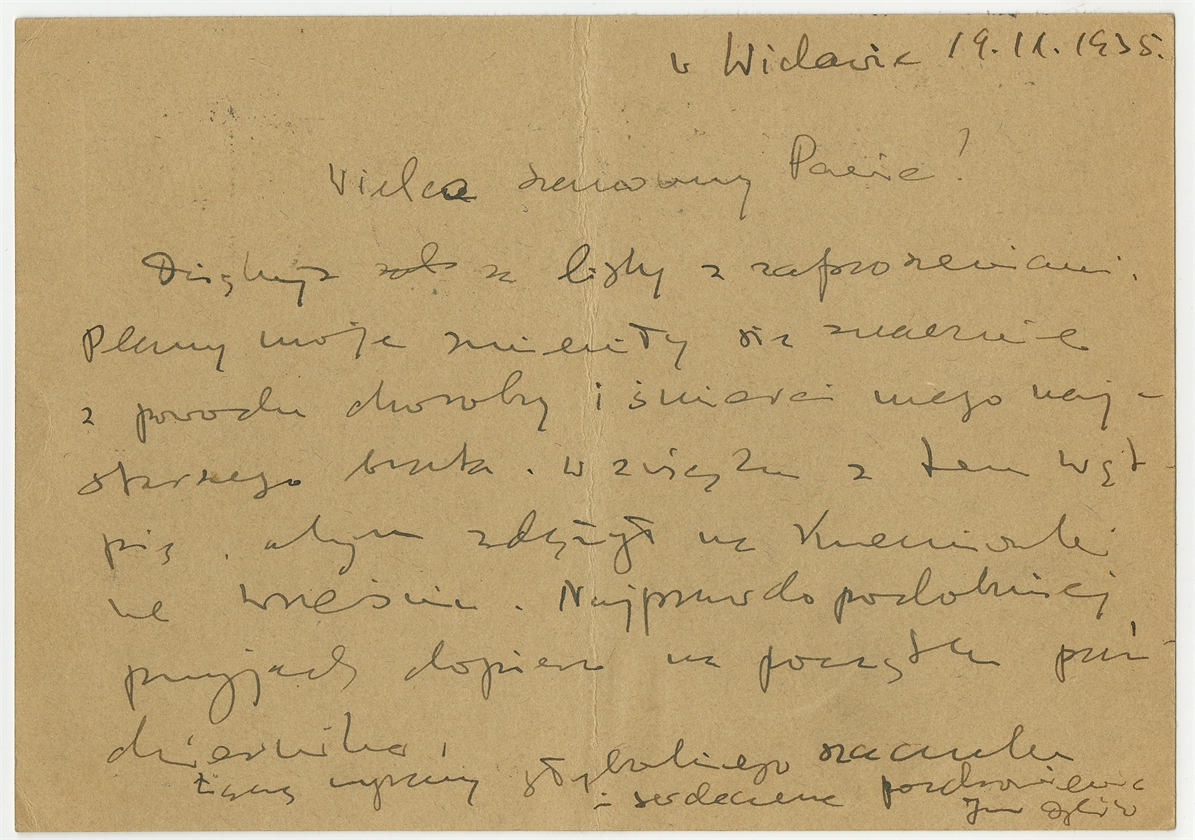 w Widawie 19.11.1935.
Wielce szanowny Panie!
Dziękuję za listy z zaproszeniami.
Plany moje zmieniły się znacznie
z powodu choroby i śmierci mego naj-
starszego brata. W związku z tem wąt-
pię, abym zdążył na
we wrześniu. Najprawdopodobniej
przyjadę dopiero na początku paź-
dziernika.
Łączę wyrazy głębokiego szacunku
i serdeczne pozdrowienia
Jan